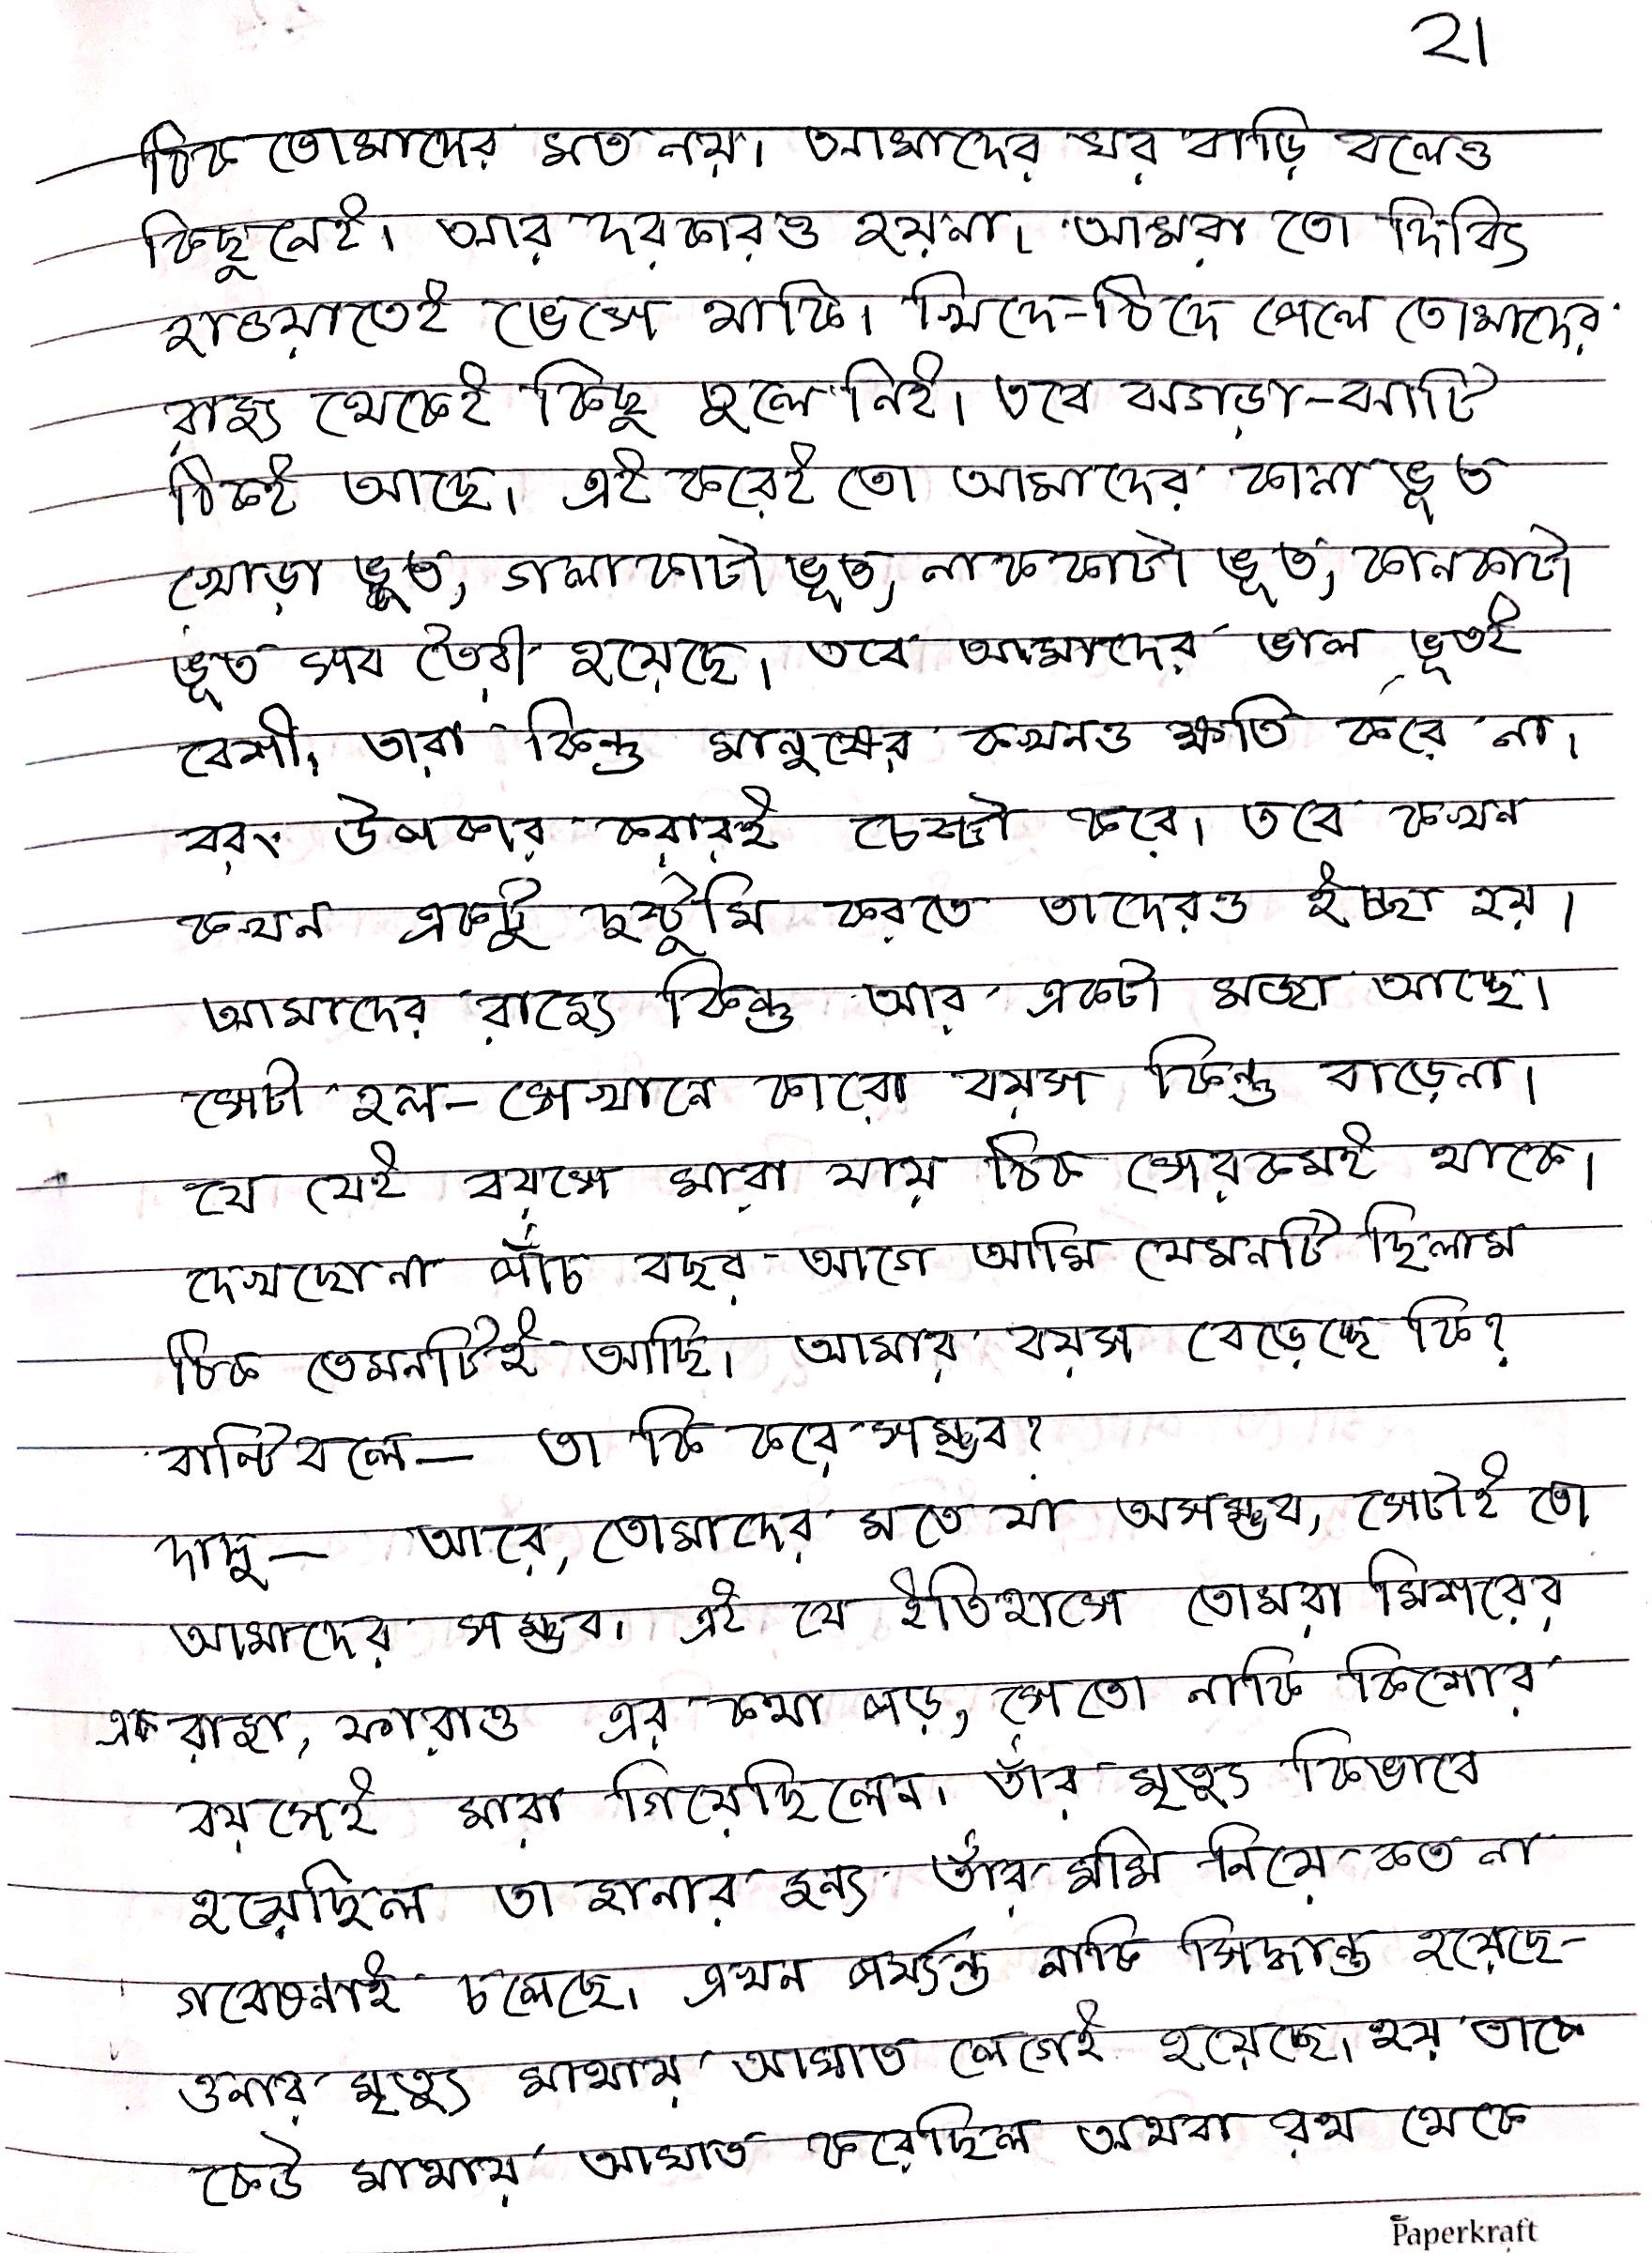 21
ঠিক তোমাদের মত নয়। আমাদের ঘর বাড়ি বলেও
কিছু নেই। আর দরকারও হয়না। আমরা তো দিব্যি
হাওয়াতেই ভেসে থাকি। খিদে-ঠিদে পেলে তোমাদের
রাজ্য থেকেই কিছু তুলে নিই। তবে ঝগড়া-ঝাটি
ঠিকই আছে। এই করেই তো আমাদের কানা ভূত
খোড়া ভূত, গলাকাটা ভূত, নাককাটা ভূত, কানকাটা
ভূত সব তৈরী হয়েছে। তবে আমাদের ভাল ভূতই
বেশী, তারা কিন্তু মানুষের কখনও ক্ষতি করে না।
বরং উপকার করারই চেষ্টা করে। তবে কখন
কখন একটু দুষ্টুমি করতে তাদেরও ইচ্ছা হয়।
আমাদের রাজ্যে কিন্তু আর একটা মজা আছে।
সেটা হল- সেখানে কারো বয়স কিন্তু বাড়েনা।
যে যেই বয়সে মারা যায় ঠিক সেরকমই থাকে।
দেখছোনা পাঁচ বছর আগে আমি যেমনটি ছিলাম
ঠিক তেমনটিই আছি। আমার বয়স বেড়েছে কি?
বান্টি বলে— তা কি করে সম্ভব?
দাদু— আরে, তোমাদের মতে যা অসম্ভব, সেটাই তো
আমাদের সম্ভব। এই যে ইতিহাসে তোমরা মিশরের
এক রাজা, ফারাও এর কথা পড়, সে তো নাকি কিশোর
বয়সেই মারা গিয়েছিলেন। তাঁর মৃত্যু কিভাবে
হয়েছিল তা জানার জন্য তাঁর মমি নিয়ে কত না
গবেষনাই চলেছে। এখন পর্যন্ত নাকি সিদ্ধান্ত হয়েছে-
ওনার মৃত্যু মাথায় আঘাত লেগেই হয়েছে। হয় তাকে
কেউ মাথায় আঘাত করেছিল অথবা রথ থেকে
Paperkraft